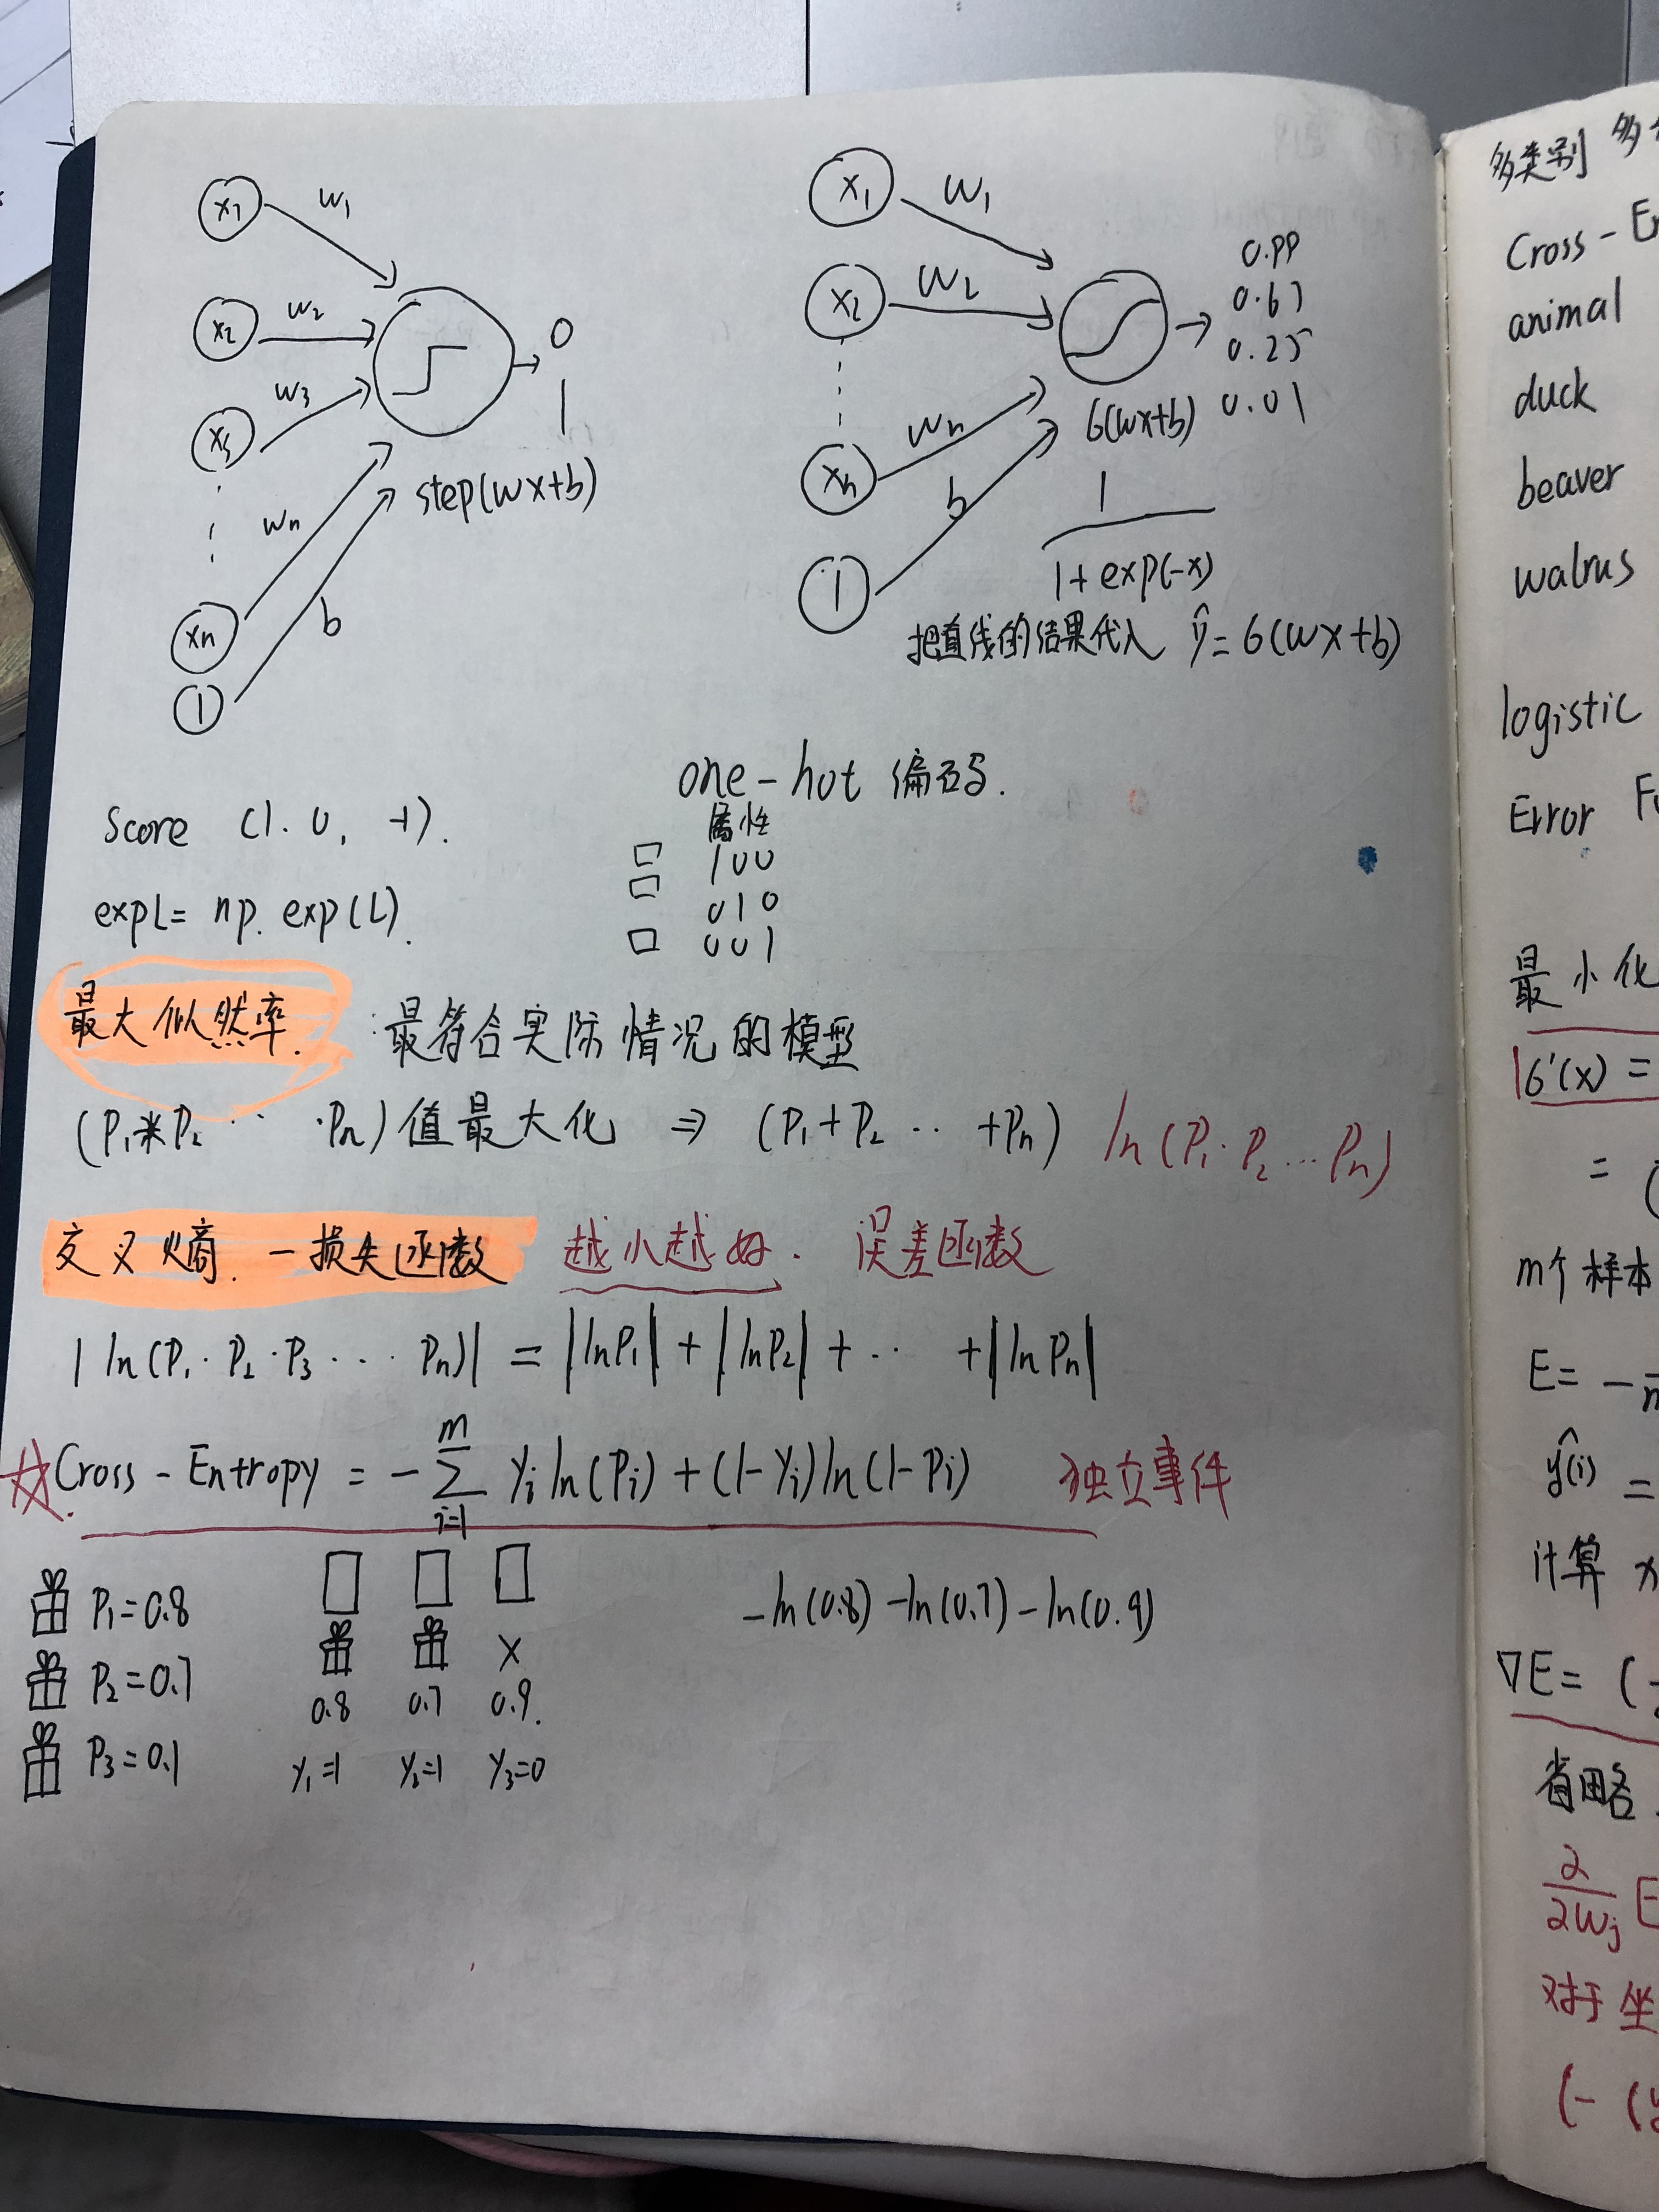 x1 w1
x2 w2
x3 w3
xn wn
1 b
0
1
step(wx+b)
x1 w1
x2 w2
xn wn
1 b
0.99
0.67
0.25
0.01
6(wx+b)
1
1+exp(-x)
把直线的结果代入 ŷ=6(wx+b)
one-hot 编码.
属性
100
010
001
Score (1. 0, -1).
expL= np. exp(L).
最大似然率. : 最符合实际情况的模型
(P1*P2 ... ·Pn) 值最大化 ⇒ (P1+P2 ·· +Pn) ln(P1·P2...Pn)
交叉熵. -损失函数 越小越好. 误差函数
|ln(P1·P2·P3··· Pn)| = |lnP1|+|lnP2|+·· +|lnPn|
☆Cross-Entropy = -∑ᵐᵢ₌₁ yi ln(Pi)+(1-yi)ln(1-Pi) 独立事件
P1=0.8
P2=0.7
P3=0.1
X
0.8 0.7 0.9.
y1=1 y2=1 y3=0
-ln(0.8)-ln(0.7)-ln(0.9)
多类别
Cross-E
animal
duck
beaver
walrus
logistic
Error
最小化
6'(x)=
= (
m个样本
E= -
ŷ(i) =
计算 x
∇E= (
省略
2
2wj E
对于坐
(- (y